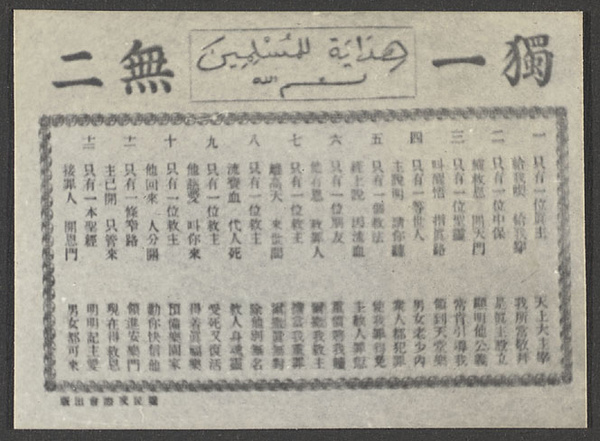 獨一無二
هداية للمسلمين
بسم الله
一 只有一位眞主 天上大主宰
給我喫 給我穿 我所當敬拜
二 只有一位中保 是眞主設立
施救恩 開天門 顯明他公義
三 只有一位聖靈 常常引導我
叫醒悟 指眞路 領到天堂樂
四 只有一等世人 男女老少內
主說明 請你聽 眾人都犯罪
五 只有一個救法 使我罪得免
經上說 因流血 主救人罪愆
六 只有一位朋友 重價將我贖
他有恩 救罪人 我救主
七 只有一位救主 擔當我眾罪
離高天 來世間 實無對
八 只有一位救主 除他別無名
流寶血 代人死 救人身魂靈
九 只有一位救主 受死又復活
他慈愛 叫你來 得善眞福樂
十 只有一位救主 預備樂園家
他回來 人分開 勸你快信他
十一 只有一條窄路 領進安樂門
主已開 只管來 現在得救恩
十二 只有一本聖經 明明記主愛
接罪人 開恩門 男女都可來
會出版